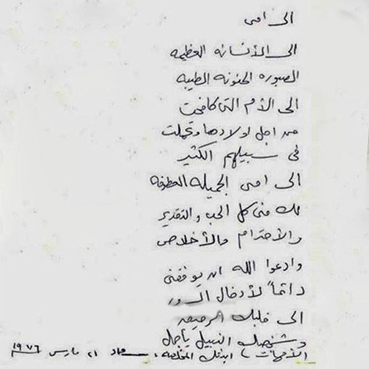 الى امى
الى الأنسانه العظيمه
الصبوره الحنونه الطيبه
الى الأم التى كافحت
من اجل اولادها وتحملت
فى سبيلهم الكثير
الى امى الجميله العطوفه
لك منى كل الحب والتقدير
والأحترام والأخلاص
وادعوا الله ان يوفقنى
دائماً لأدخال السرور
الى قلبك
وشخصك النبيل يا أجمل
الأمهات ابنتك المخلصه، سعاد ٢١ مارس ١٩٧٦